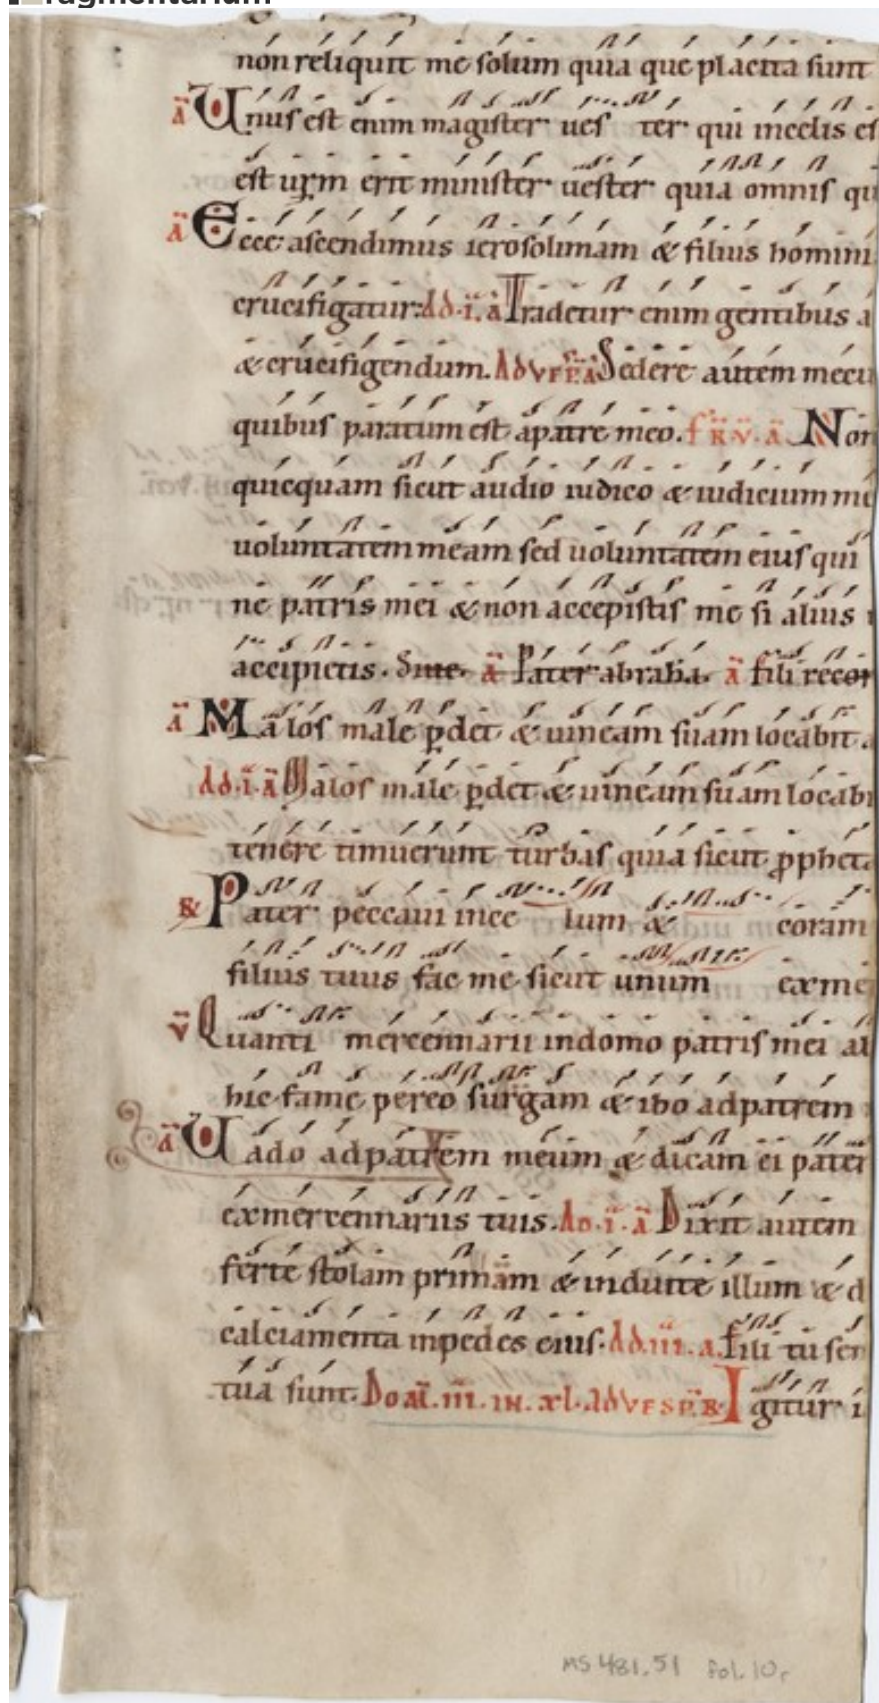 non reliquit me solum quia que placita sunt
ā Unus est enim magister ues ter qui incelis es
est urm̄ erit minister uester quia omnis qu
ā Ecce ascendimus ierosolimam & filius homini
crucifigatur. Ad .i. ā Tradetur enim gentibus a
& crucifigendum. Ad VESP. ā Sedere autem mecu
quibus paratum est apatre meo. f R̄. v. ā. Non
quicquam sicut audio iudico & iudicium me
uoluntatem meam sed uoluntatem eius qui
ne patris mei & non accepistis me si alius
accipietis. ā Pater abraha. ā fili recor
ā Malos male p̄det & uineam suam locabit a
Ad .i. ā Malos male p̄det & uineam suam locabi
tenere timuerunt turbas quia sicut ꝓpheta
R Pater peccaui ince lum & coram
filius tuus fac me sicut unum exme
v̄ Quanti mercennarii indomo patris mei ab
hic fame pereo surgam & ibo adpatrem
ā Uado adpatrem meum & dicam ei pater
exmercennariis tuis. Ad .i. ā Dixit autem
ferte stolam primam & induite illum & d
calciamenta inpedes eius. Ad .iii. a. fili tu sem
tua sunt. Do m̄. iii. IN. xl. Ad VESP. R Igitur i
MS 481.51 fol. 10r